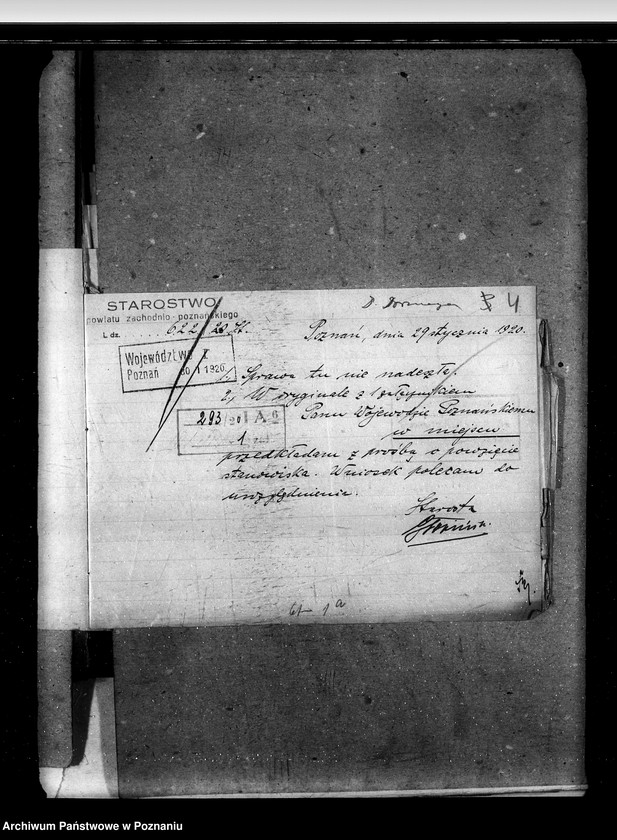 4
STAROSTWO
powiatu zachodnio-poznańskiego
L. dz. 622/20
Poznań, dnia 29 stycznia 1920.
Województwo
Poznań 30 1 1920
1/ Sprawa tu nie nadeszła.
2/ W oryginale z 1 załącznikiem
293/20 I A 6
1 zał
Panu Wojewodzie Poznańskiemu
w miejscu
przedkładam z prośbą o powzięcie
stanowiska. Wniosek polecam do
uwzględnienia.
Starosta
Archiwum Państwowe w Poznaniu